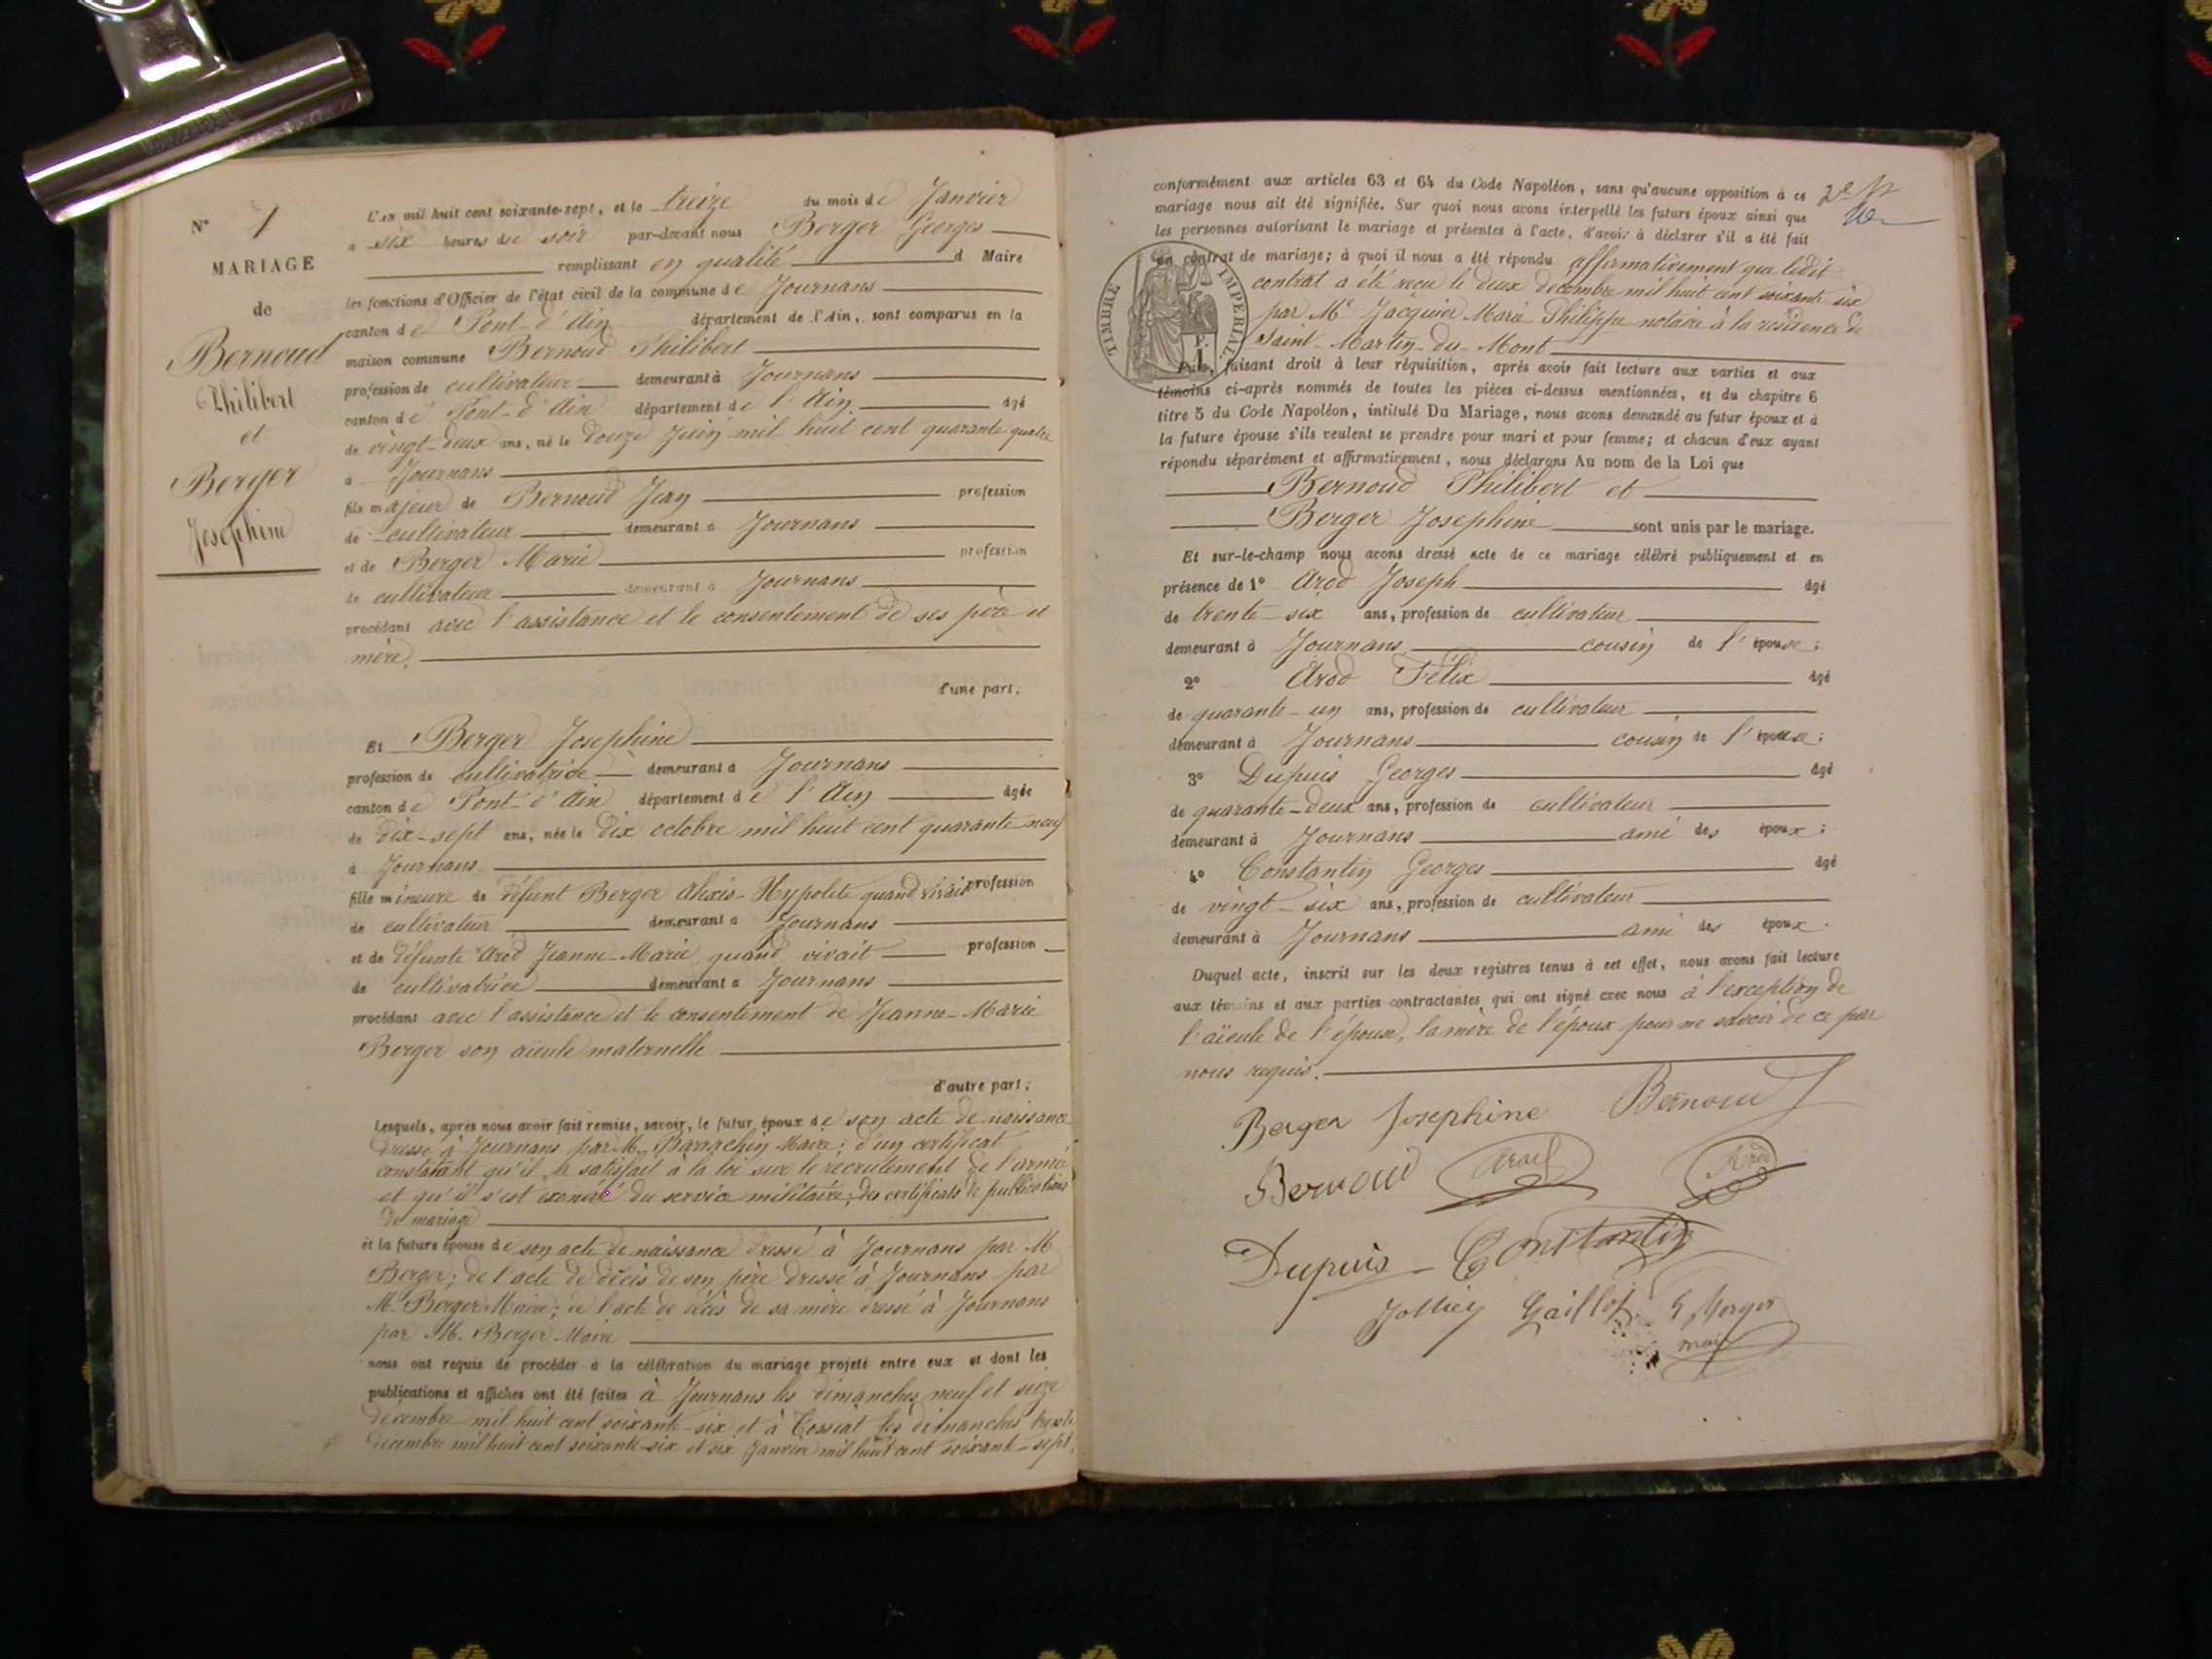 N° 1
MARIAGE
de
Bernoud
Philibert
et
Berger
Josephine
L'an mil huit cent soixante-sept, et le treize du mois de Janvier
a six heures du soir par-devant nous Berger Georges
remplissant en qualité d Maire
les fonctions d'Officier de l'état civil de la commune de Journans
canton de Pont-d'Ain département de l'Ain, sont comparus en la
maison commune Bernoud Philibert
profession de cultivateur demeurant à Journans
canton de Pont-d'Ain département de l'Ain âgé
de vingt-deux ans, né le douze Juin mil huit cent quarante quatre
a Journans
fils majeur de Bernoud Jean profession
de cultivateur demeurant a Journans
et de Berger Marie profession
de cultivateur demeurant a Journans
procédant avec l'assistance et le consentement de ses père et
mère.
d'une part;
Et Berger Josephine
profession de cultivatrice demeurant à Journans
canton de Pont-d'Ain département de l'Ain âgée
de dix-sept ans, née le dix octobre mil huit cent quarante-neuf
à Journans
fille mineure de défunt Berger Alexis-Hypolite quand vivait profession
de cultivateur demeurant a Journans
et de défunte Arod Jeanne-Marie quand vivait profession
de cultivatrice demeurant a Journans
procédant avec l'assistance et le consentement de Jeanne-Marie
Berger son aïeule maternelle
d'autre part;
Lesquels, après nous avoir fait remise, savoir, le futur époux de son acte de naissance
dressé à Journans par M. Maire; d'un certificat
constatant qu'il a satisfait à la loi sur le recrutement de l'armée
et qu'il s'est exonéré du service militaire; des certificats de publications
de mariage
et la future épouse de son acte de naissance dressé à Journans par M
Berger; de l'acte de décès de son père dressé à Journans par
M. Berger Maire; de l'acte de décès de sa mère dressé à Journans
par M. Berger Maire
nous ont requis de procéder à la célébration du mariage projeté entre eux et dont les
publications et affiches ont été faites à Journans les dimanches neuf et seize
décembre mil huit cent soixante-six et à Tossiat les dimanches trente
décembre mil huit cent soixante-six et six Janvier mil huit cent soixante-sept,
conformément aux articles 63 et 64 du Code Napoléon, sans qu'aucune opposition à ce
mariage nous ait été signifiée. Sur quoi nous avons interpellé les futurs époux ainsi que
les personnes autorisant le mariage et présentes à l'acte, d'avoir à déclarer s'il a été fait
un contrat de mariage; à quoi il nous a été répondu affirmativement que ledit
contrat a été reçu le deux décembre mil huit cent soixante six
par Me Jacquier Marie-Philippe notaire à la résidence de
Saint-Martin-du-Mont
TIMBRE IMPERIAL
F.
1
Puis, faisant droit à leur réquisition, après avoir fait lecture aux parties et aux
témoins ci-après nommés de toutes les pièces ci-dessus mentionnées, et du chapitre 6
titre 5 du Code Napoléon, intitulé Du Mariage, nous avons demandé au futur époux et à
la future épouse s'ils veulent se prendre pour mari et pour femme; et chacun d'eux ayant
répondu séparément et affirmativement, nous déclarons Au nom de la Loi que
Bernoud Philibert et
Berger Josephine sont unis par le mariage.
Et sur-le-champ nous avons dressé acte de ce mariage célébré publiquement et en
présence de 1° Arod Joseph âgé
de trente-six ans, profession de cultivateur
demeurant à Journans cousin de l'épouse;
2° Arod Félix âgé
de quarante-un ans, profession de cultivateur
demeurant à Journans cousin de l'épouse;
3° Dupuis Georges âgé
de quarante-deux ans, profession de cultivateur
demeurant à Journans ami des époux;
4° Constantin Georges âgé
de vingt-six ans, profession de cultivateur
demeurant à Journans ami des époux.
Duquel acte, inscrit sur les deux registres tenus à cet effet, nous avons fait lecture
aux témoins et aux parties contractantes qui ont signé avec nous à l'exception de
l'aïeule de l'épouse, la mère de l'époux pour ne savoir de ce par
nous requis.
Berger Josephine Bernoud
Bernoud Arod Arod
Dupuis Constantin
Gaillot G Berger
maire